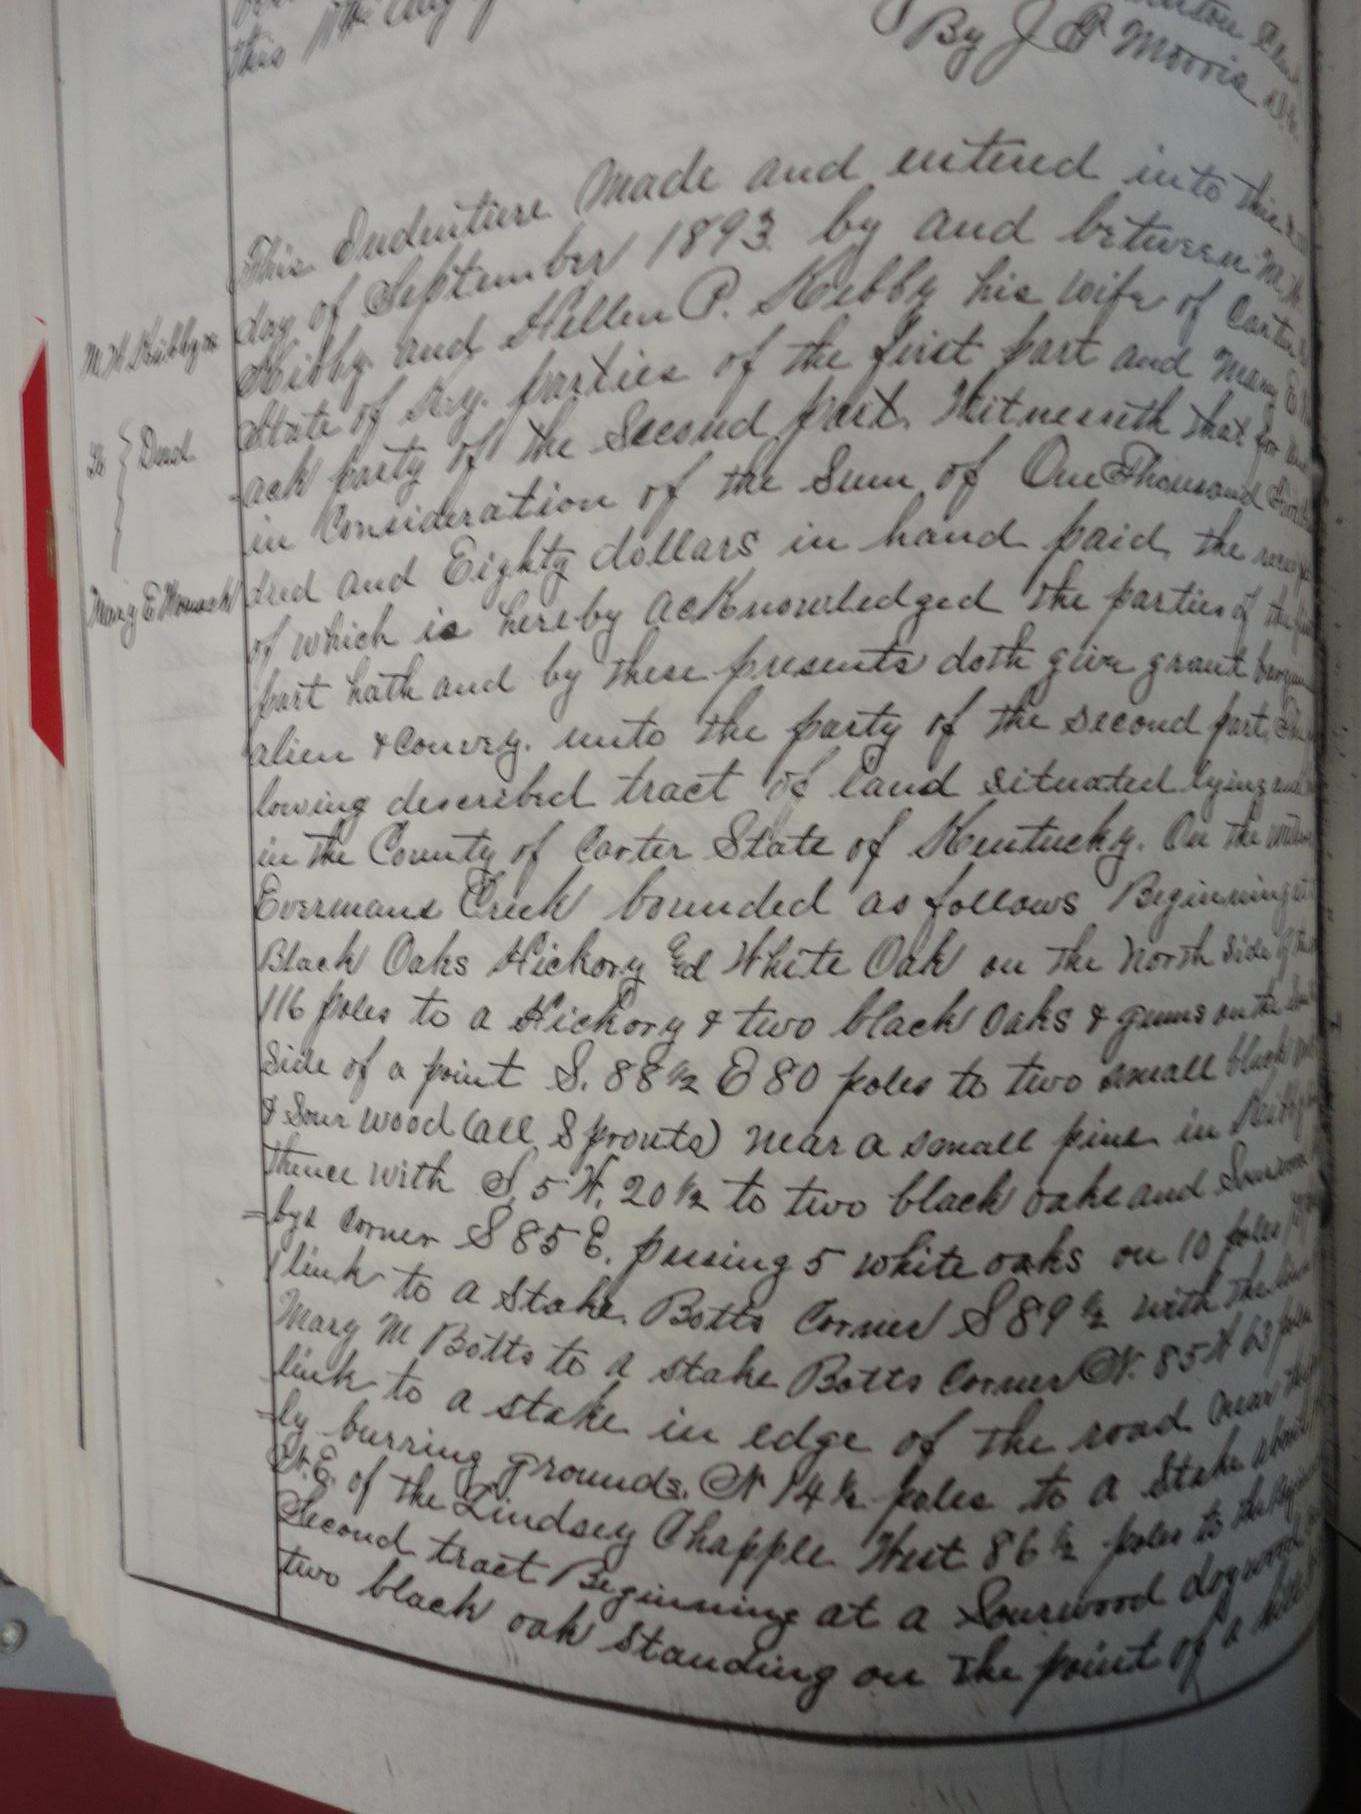 this 11th Aug
By J P Morris D.C.
This Indenture Made and entered into this
day of September 1893 by and between M. H.
Kibby and Hellen P. Kebby his wife of Carter
State of Ky. parties of the first part and Mary E
ack party of the Second part. Witnesseth that for and
in Consideration of the Sum of One Thousand
dred and Eighty dollars in hand paid the
of which is hereby acKnowledged the parties of the
part hath and by these presents doth give grant
alien & convey. unto the party of the second part.
lowing described tract of land situated lying and
in the County of Carter State of Kentucky. On the
Evermans Creek bounded as follows Beginning at
Black Oaks Hickory and White Oak on the North Side of
116 poles to a Hickory & two black Oaks & gums on the
Side of a point S. 88 1/2 E 80 poles to two small black
& Sour wood (all Sprouts) near a small pine in
thence with S, 5 W, 20 1/2 to two black oaks and
=bys Corner S 85 E. passing 5 white oaks on 10 poles
link to a Stake Botts Corner S 89 1/2 with the
Mary M Botts to a stake Botts Corner N. 85 W 63 poles
link to a stake in edge of the road near
=ly burring grounds. N 14 1/2 poles to a Stake about
N.E. of the Lindsey Chapple West 86 1/2 poles to the
Second tract Beginning at a Sourwood dogwood
two black oak Standing on the point of a
M H Kibby
To { Deed
Mary E Womack